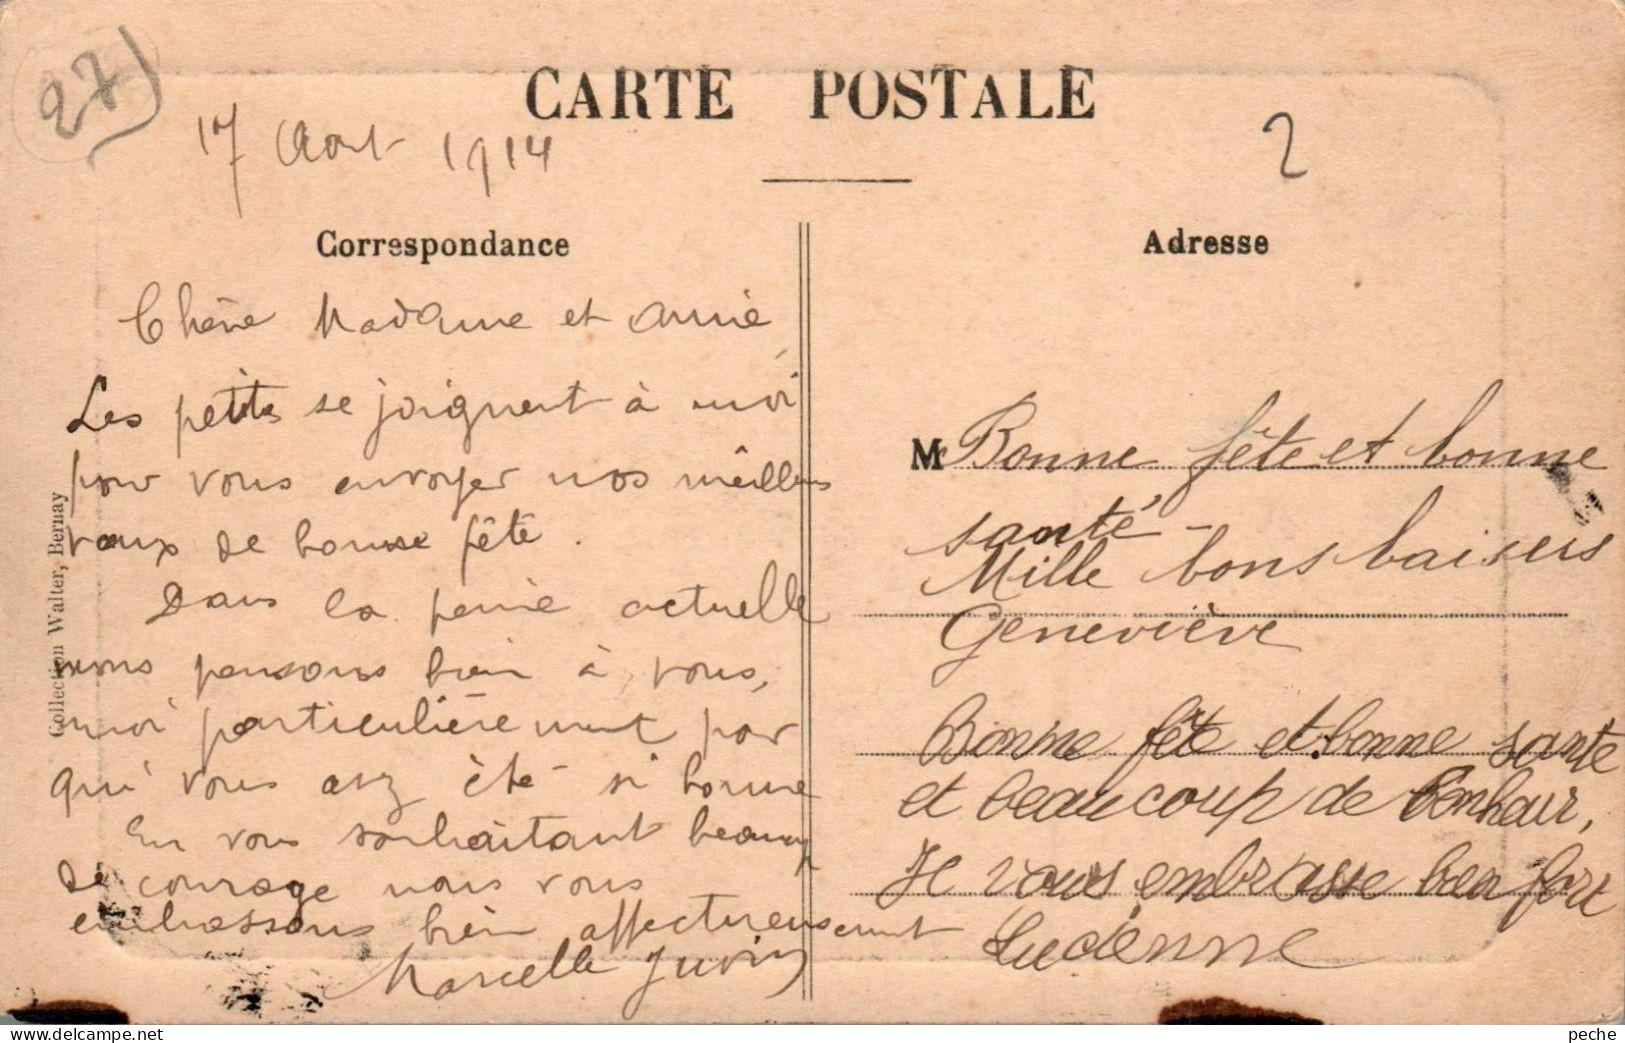 27
CARTE POSTALE
17 Aout 1914
2
Correspondance
Chère Madame et amie,
Les petits se joignent à moi
pour vous envoyer nos meilleurs
vœux de bonne fête.
Dans la peine actuelle
nous pensons bien à vous,
moi particulièrement pour
qui vous avez été si bonne
En vous souhaitant beaucoup
de courage nous vous
embrassons bien affectueusement
Marcelle
Collection Walter, Bernay
Adresse
M Bonne fête et bonne
santé -
Mille bons baisers
Geneviève
Bonne fête et bonne sante
et beaucoup de bonheur,
Je vous embrasse bien fort
Lucienne
peche